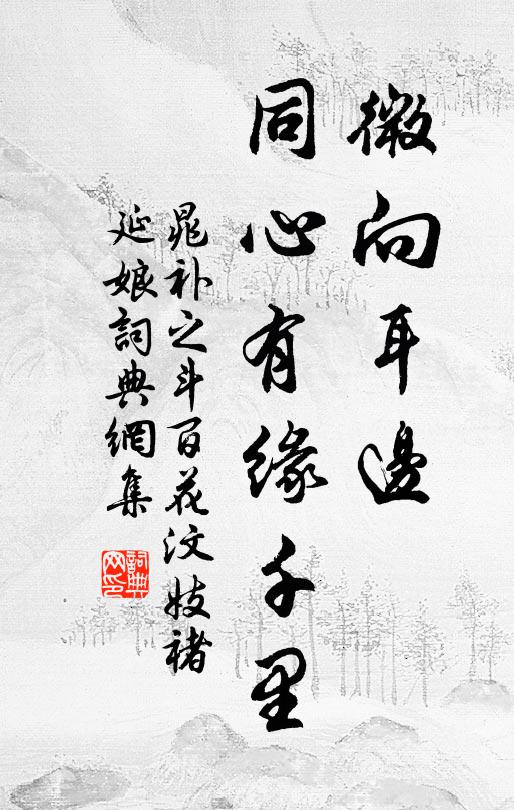 微向耳邊
同心有緣千里
晁补之斗百花汶妓褚
延娘詞典網集
詞典网印